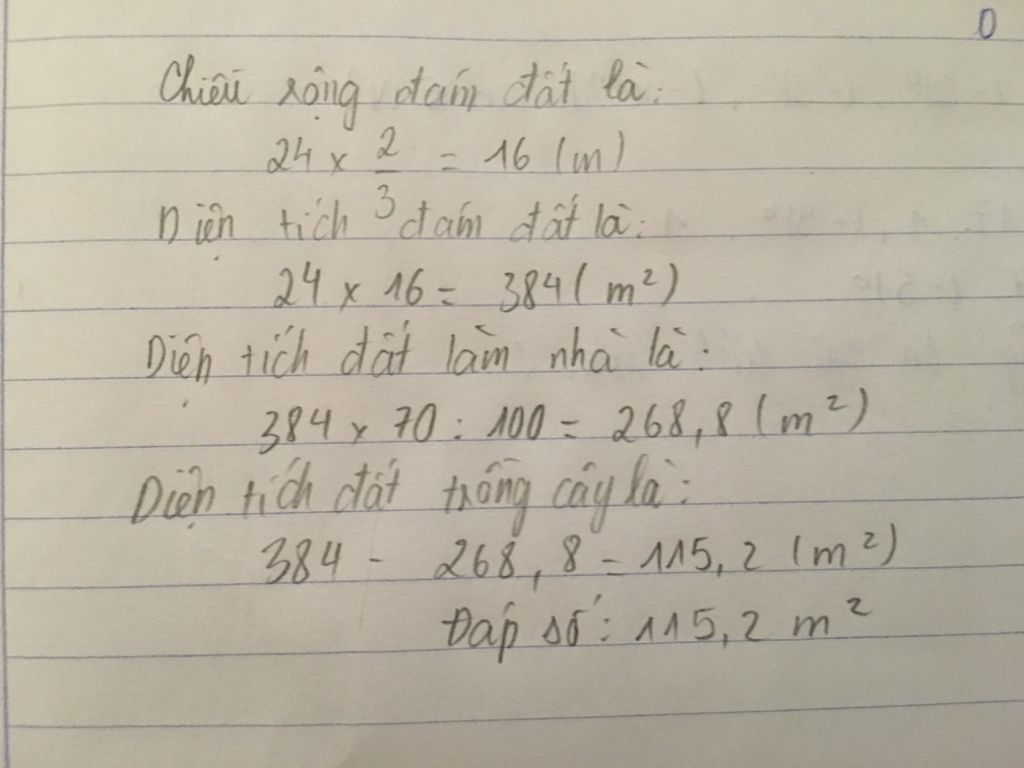 0
Chiều rộng đám đất là:
24 x 2/3 = 16 (m)
Diện tích đám đất là:
24 x 16 = 384 (m²)
Diện tích đất làm nhà là:
384 x 70 : 100 = 268,8 (m²)
Diện tích đất trồng cây là:
384 - 268,8 = 115,2 (m²)
Đáp số: 115,2 m²